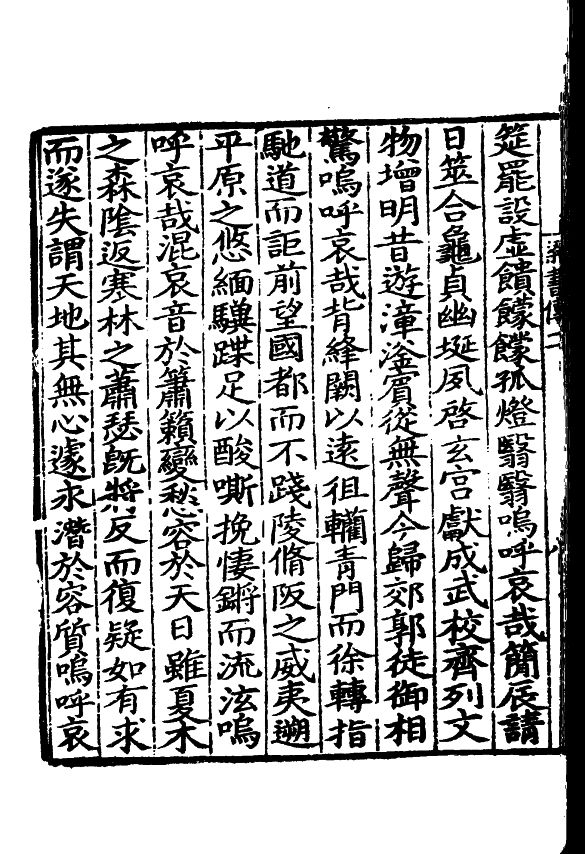 筵罷設虛饋饛饛孤燈翳翳嗚呼哀哉簡辰請
日筮合龜貞幽埏夙啓玄宮獻成武校齊列文
物增明昔遊漳滏賓從無聲今歸郊郭徒御相
驚嗚呼哀哉背絳闕以遠徂轥青門而徐轉指
馳道而詎前望國都而不踐陵脩阪之威夷遡
平原之悠緬驥蹀足以酸嘶挽悽鏘而流泫嗚
呼哀哉混哀音於簫籟變愁容於天日雖夏木
之森隂返寒林之蕭瑟既將反而復疑如有求
而遂失謂天地其無心遽永潛於容質嗚呼哀